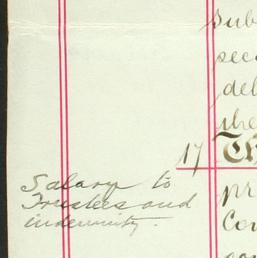 sub
sec
del
the
17 Th
Salary to
Trustees and
indemnity.
pr
Cov
con